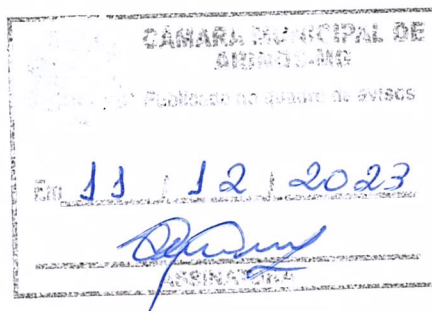 CÂMARA MUNICIPAL DE
-MG
Publicado no quadro de avisos
Em 11 / 12 / 2023
ASSINATURA